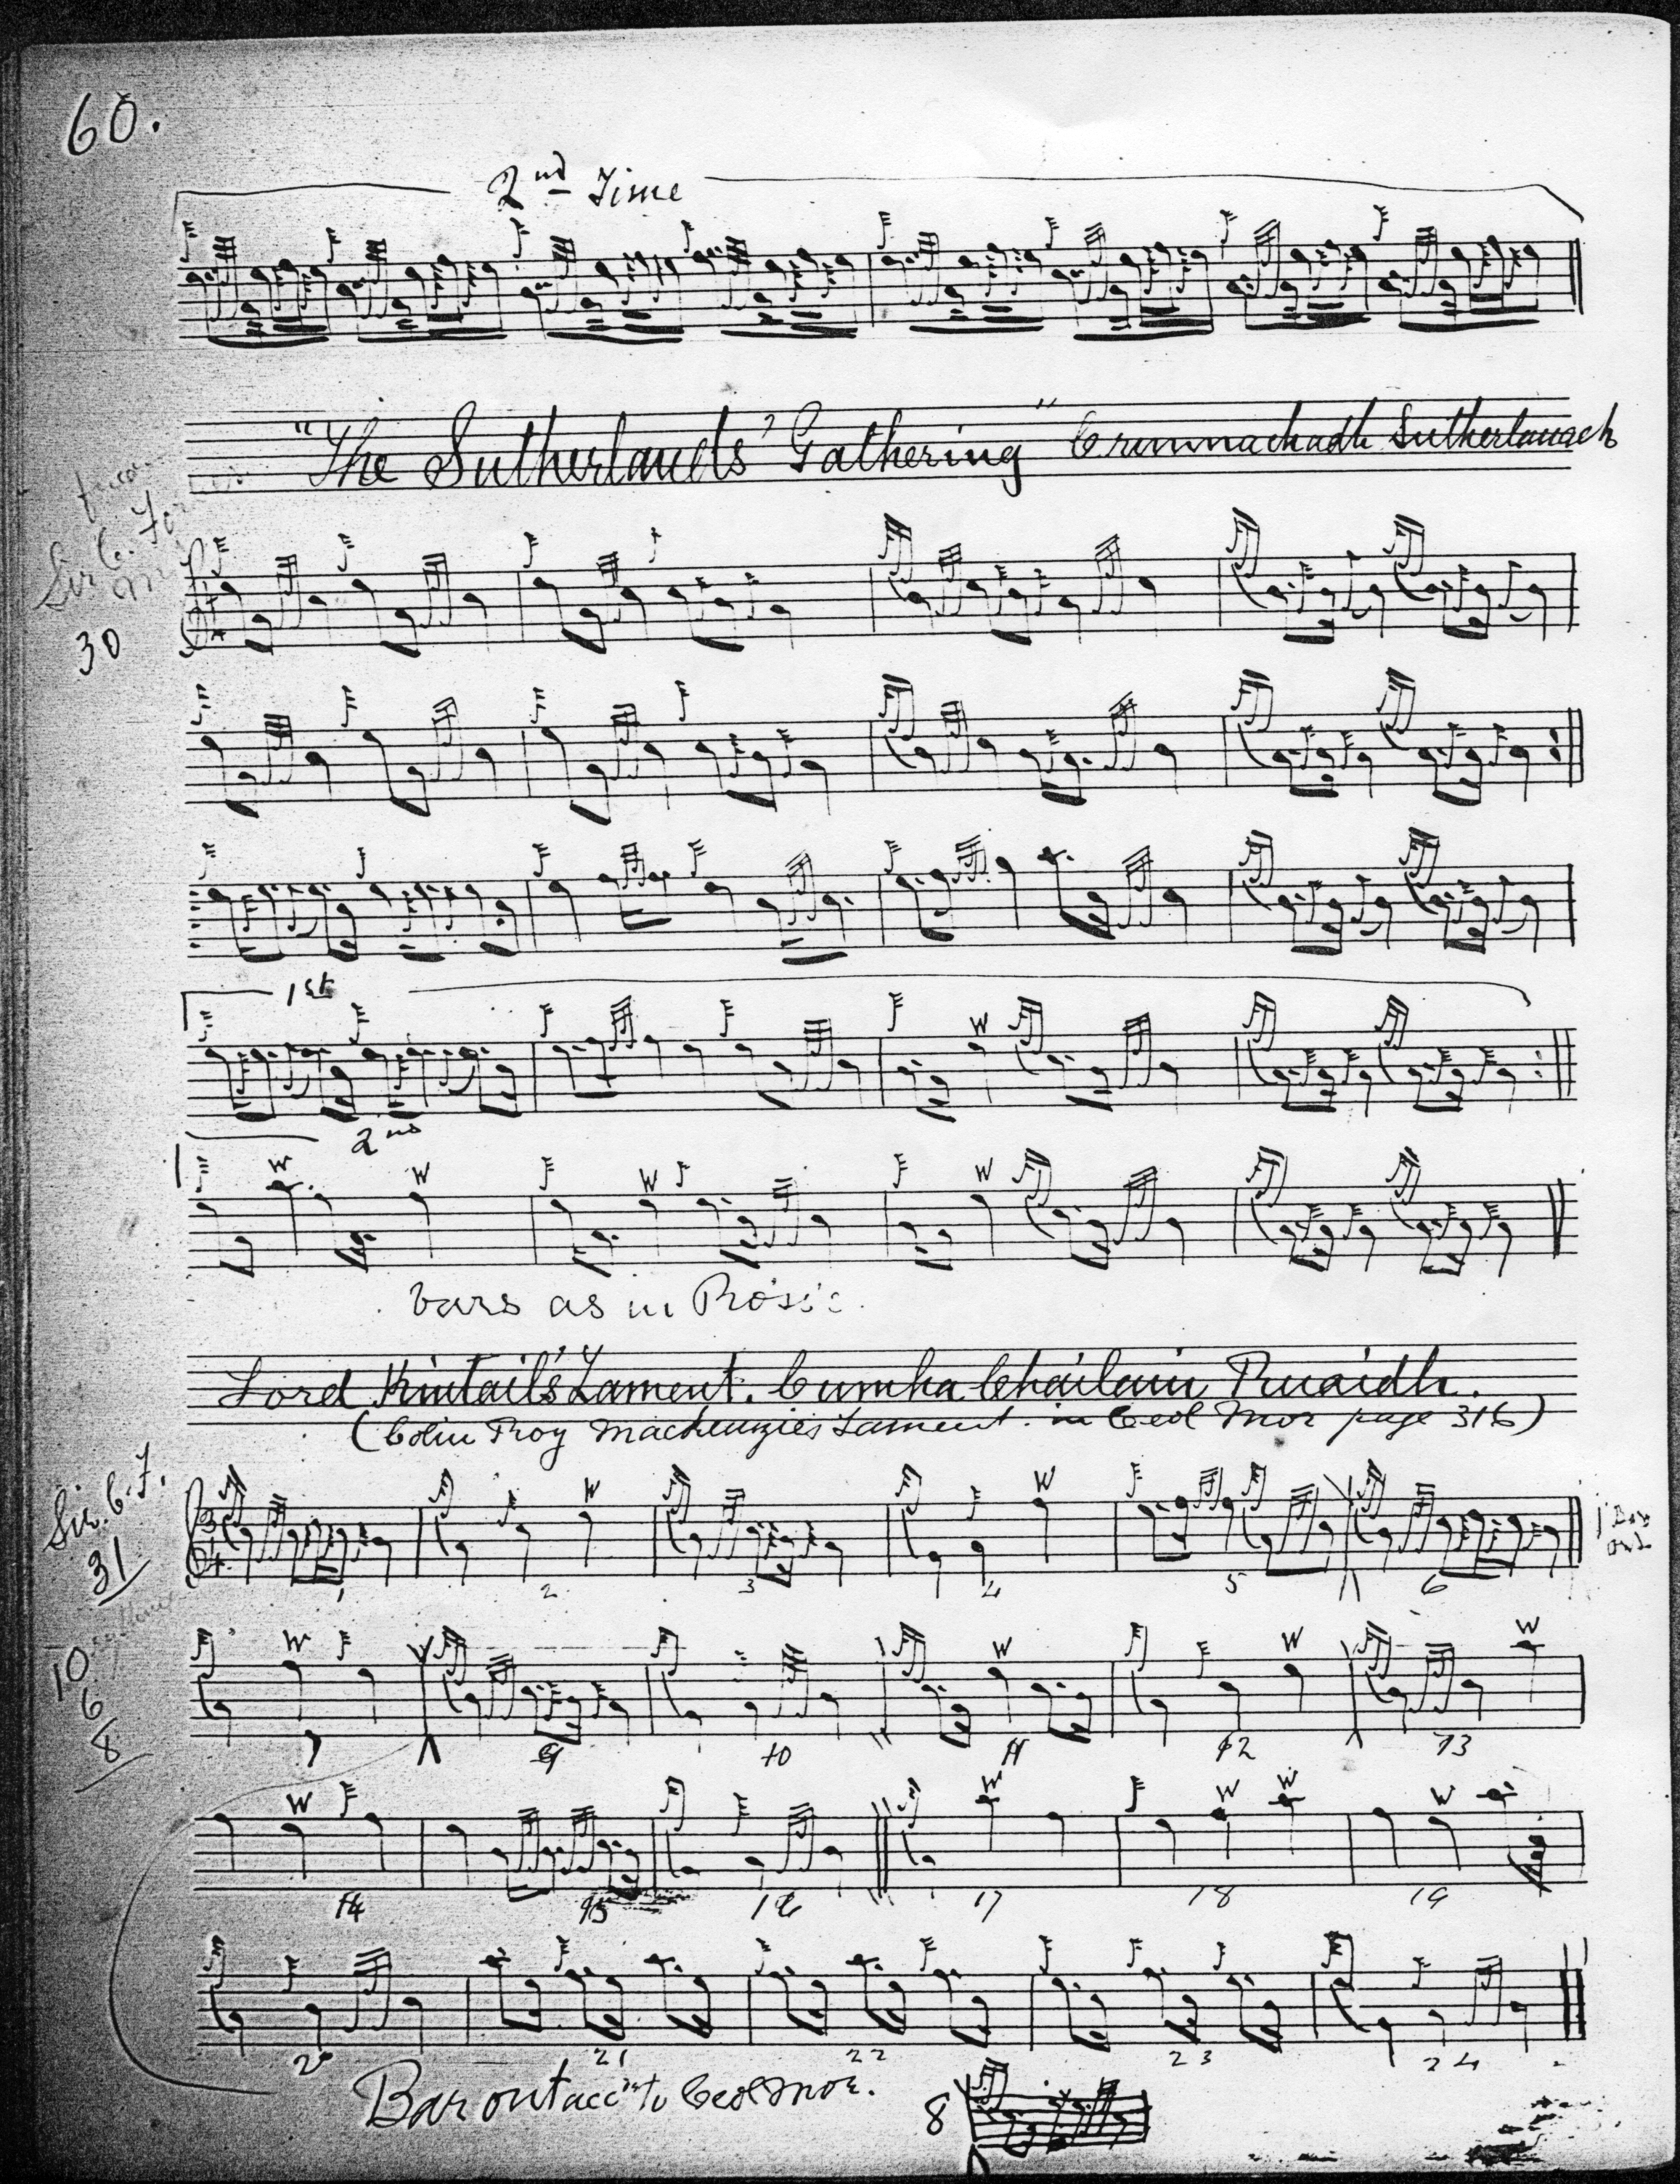 60.
2nd Time
"The Sutherlands' Gathering" Crunnachadh Sutherlanach
Sir C.
30
1st
W
2nd
W W W W
bars as in Rosie
Lord Kintail's Lament. Cumha Chailain Ruaidh.
(Colin Roy Mackenzie's Lament. in Ceol Mor page 316)
Sir. C. F.
31
3
4
W W
1 Bar out
1 2 3 4 5 6
10
6
8
W W W W
7 9 10 11 12 13
W W W W W
14 15 16 17 18 19
20 21 22 23 24
Bar out accn to Ceol Mor.
8